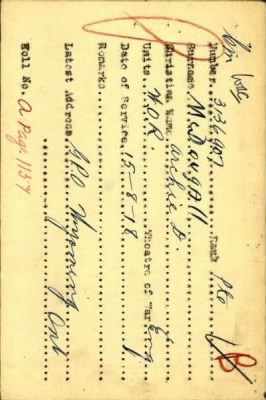 Number. 3136907 Rank Pte
Surname. McDougall
Christian Name Archie D.
Units. W.O.R. Theatre of War Eng
Date of Service 15-8-18
Remarks
Latest Address. GPO Wyoming Ont
Roll No. A Page 1137
B